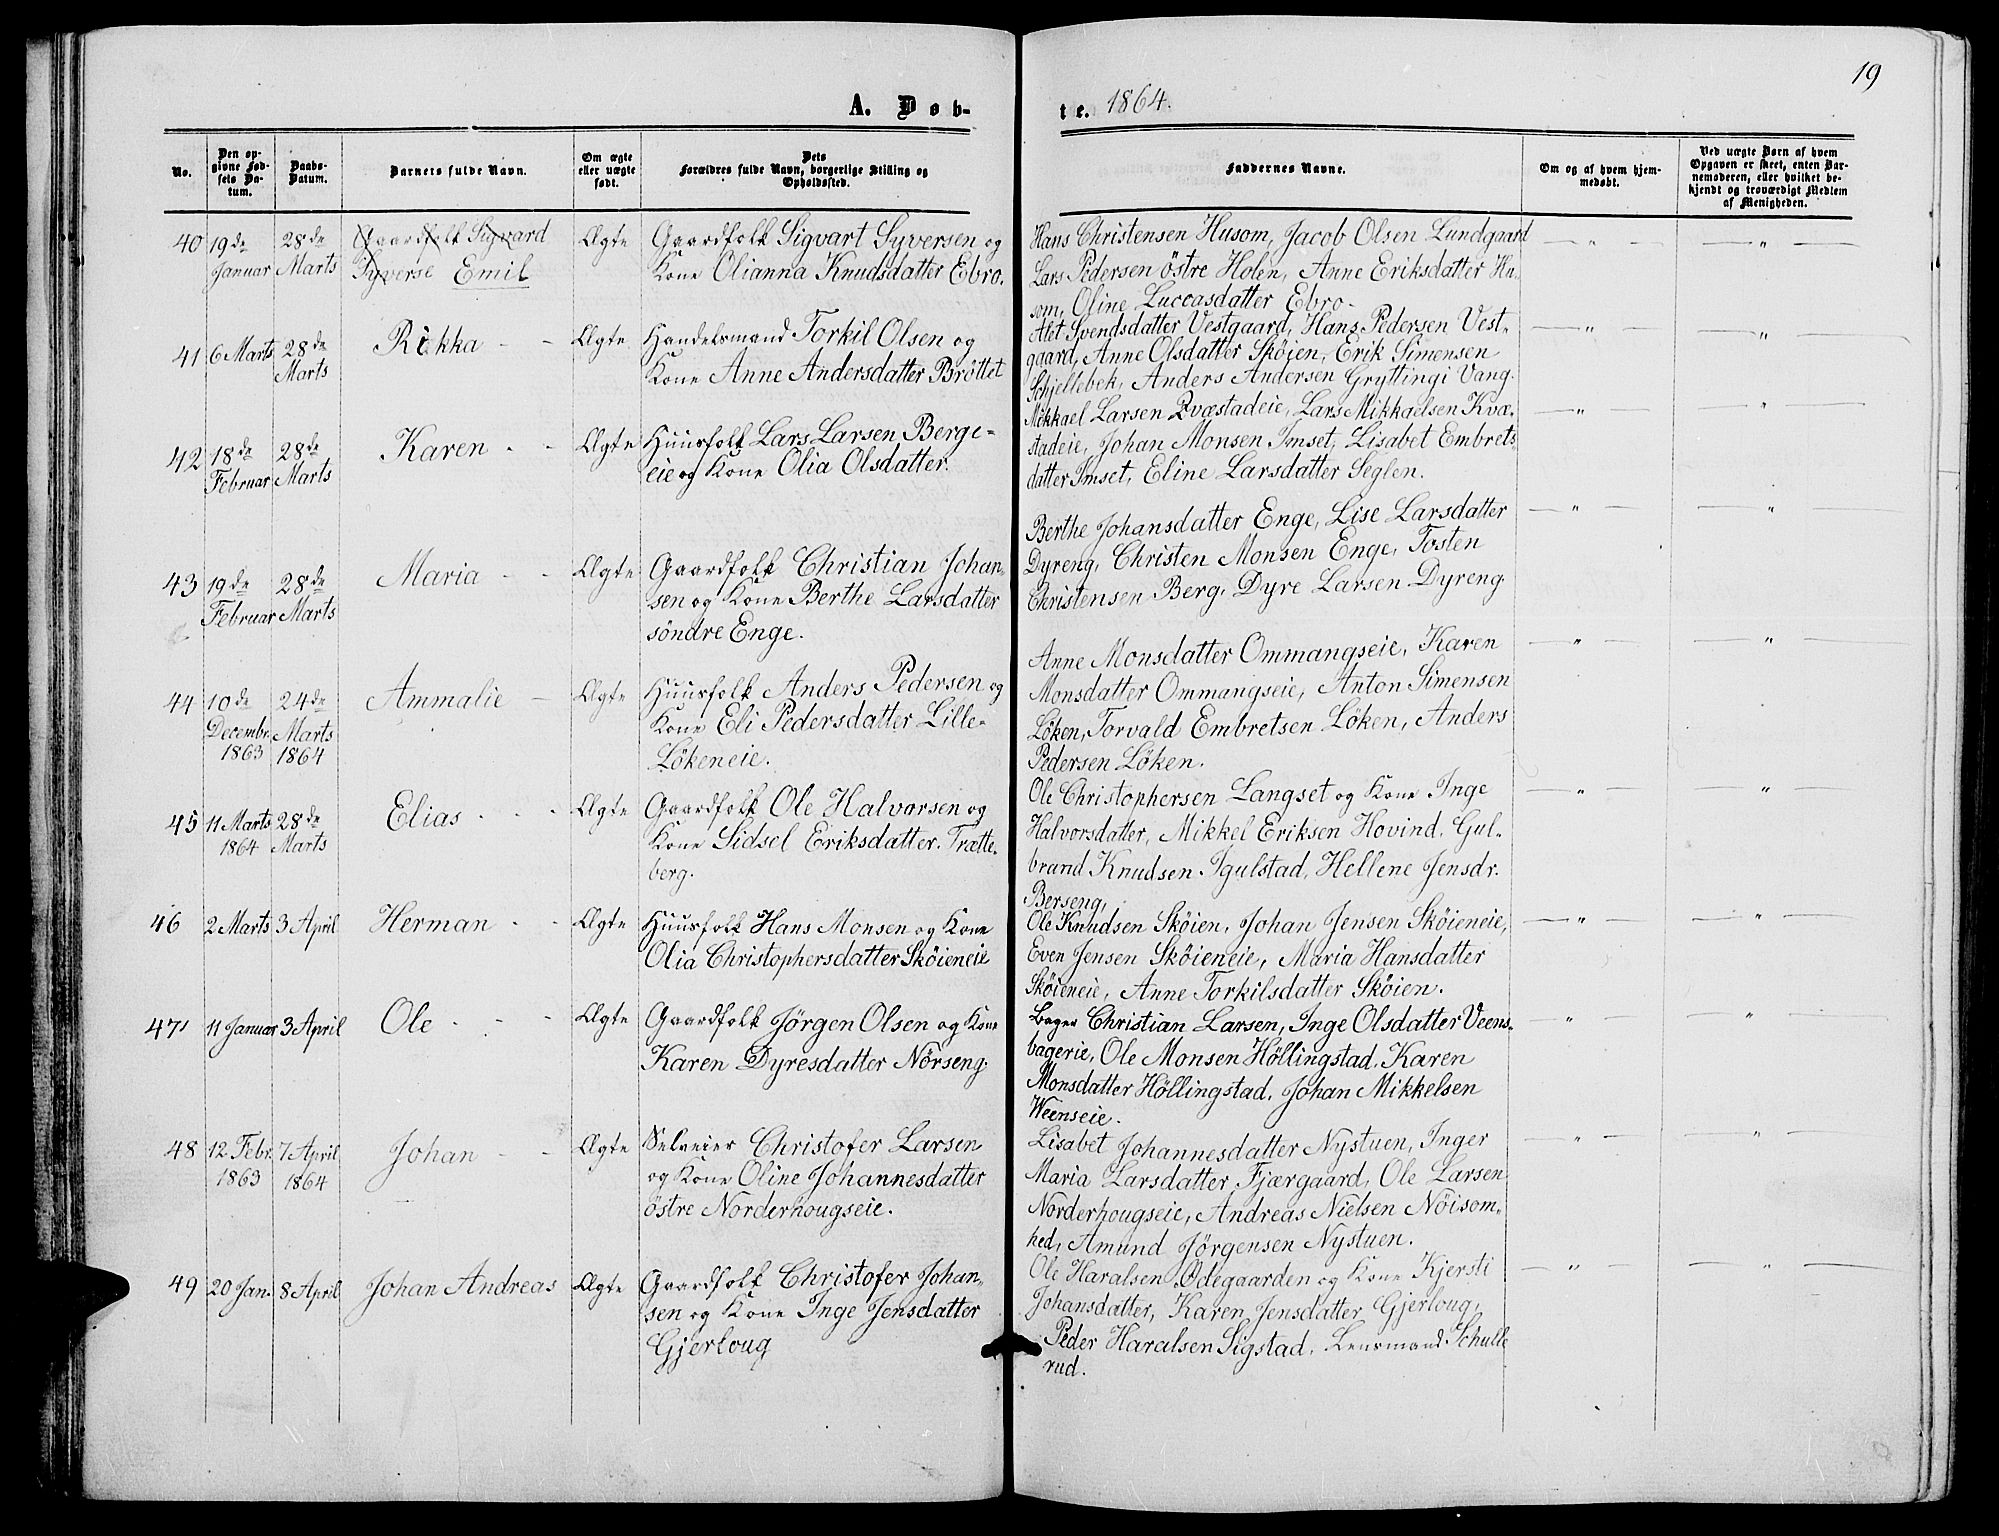 19
A. Døb-
te. 1864.
No.
Den op-
givne Fød-
sels Da-
tum.
Daabs-
Datum.
Barnets fulde Navn.
Om ægte
eller uægte
født.
Dets
Forældres fulde Navn, borgerlige Stilling og
Opholdssted.
Faddernes Navne.
Om og af hvem hjem-
medøbt.
Ved uægte Børn af hvem
Opgaven er skeet, enten Bar-
nemoderen, eller hvilket be-
kjendt og troværdigt Medlem
af Menigheden.
40 19de Januar
28de Marts
Gaardfolk Sigvard
Syverse Emil
Ægte
Gaardfolk Sigvart Syversen og
Kone Olianna Knudsdatter Ebro.
Hans Christensen Husom, Jacob Olsen Lundgaard
Lars Pedersen östre Holen, Anne Eriksdatter Hu-
som, Oline Luccasdatter Ebro.
— " —
— " —
41 6 Marts
28de Marts
Rikka
Ægte
Handelsmand Torkil Olsen og
Kone Anne Andersdatter Bröttet
Alet Svendsdatter Vestgaard, Hans Pedersen Vest-
gaard, Anne Olsdatter Sköien, Erik Simensen
Schjellebek, Anders Andersen Gryttingi Vang.
— " —
— " —
42 18de Februar
28de Marts
Karen
Ægte
Huusfolk Lars Larsen Berge-
eie og Kone Olia Olsdatter.
Mikkael Larsen Qvæstadeie, Lars Mikkaelsen Kvæ-
stadeie, Johan Monsen Imset, Lisabet Embrets-
datter Imset, Eline Larsdatter Seglen.
— " —
— " —
43 19de Februar
28de Marts
Maria
Ægte
Gaardfolk Christian Johan-
sen og Kone Berthe Larsdatter
söndre Enge.
Berthe Johansdatter Enge, Lise Larsdatter
Dyreng, Christen Monsen Enge, Tosten
Christensen Berg, Dyre Larsen Dyreng.
— " —
— " —
44 10de Decembr. 1863
24de Marts 1864
Ammalie
Ægte
Huusfolk Anders Pedersen og
Kone Eli Pedersdatter Lille-
Lökeneie.
Anne Monsdatter Ommangseie, Karen
Monsdatter Ommangseie, Anton Simensen
Löken, Torvald Embretsen Löken, Anders
Pedersen Löken.
— " —
— " —
45 11 Marts 1864
28de Marts
Elias
Ægte
Gaardfolk Ole Halvorsen og
Kone Sidsel Eriksdatter. Trætte-
berg.
Ole Christophersen Langset og Kone Inge
Halvorsdatter, Mikkel Eriksen Hovind, Gul-
brand Knudsen Igulstad, Hellene Jensdr.
Berseng,
— " —
— " —
46 2 Marts
3 April
Herman
Ægte
Huusfolk Hans Monsen og Kone
Olia Christophersdatter Sköieneie
Ole Knudsen Sköien, Johan Jensen Sköieneie,
Even Jensen Sköieneie, Maria Hansdatter
Sköieneie, Anne Torkilsdatter Sköien.
— " —
— " —
47 11 Januar
3 April
Ole
Ægte
Gaardfolk Jörgen Olsen og Kone
Karen Dyresdatter Nörseng.
Bager Christian Larsen, Inge Olsdatter Veens-
bagerie, Ole Monsen Höllingstad, Karen
Monsdatter Höllingstad, Johan Mikkelsen
Weenseie.
— " —
— " —
48 12 Febr. 1863
7 April 1864
Johan
Ægte
Selveier Christofer Larsen
og Kone Oline Johannesdatter
östre Norderhougseie.
Lisabet Johannesdatter Nystuen, Inger
Maria Larsdatter Fjærgaard, Ole Larsen
Norderhougseie, Andreas Nielsen Nöisom-
hed, Amund Jörgensen Nystuen.
— " —
— " —
49 20 Jan.
8 April
Johan Andreas
Ægte
Gaardfolk Christofer Johan-
sen og Kone Inge Jensdatter
Gjerloug
Ole Haralsen Ødegaarden og Kone Kjersti
Johansdatter, Karen Jensdatter Gjerloug,
Peder Haralsen Sigstad, Lensmand Schulle
rud.
— " —
— " —